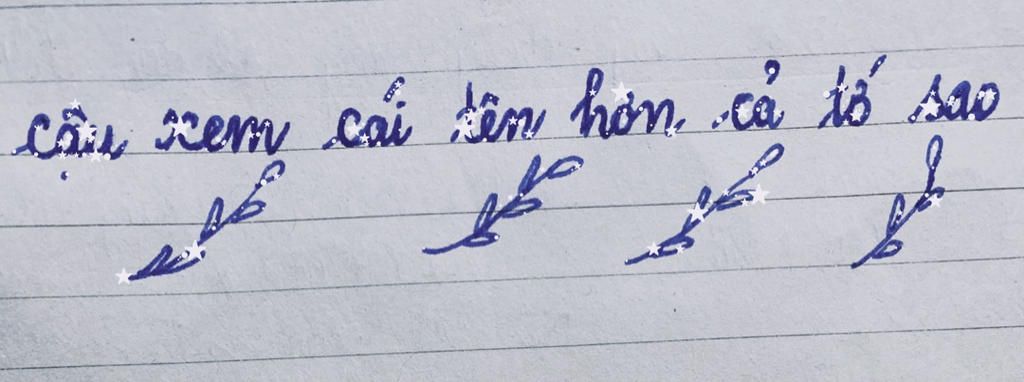 cậu xem cái tên hơn cả tố sao